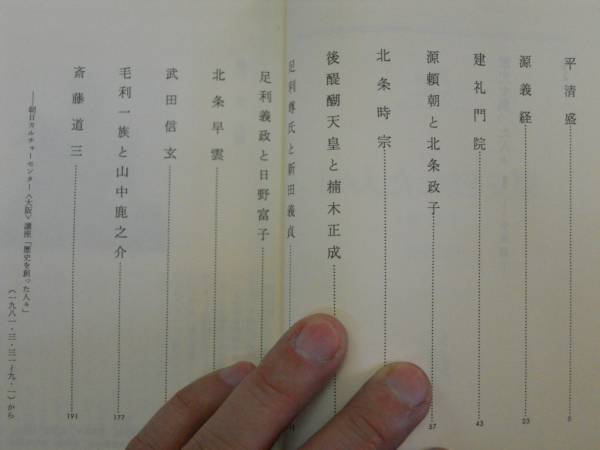 平清盛 5
源義経 23
建礼門院 43
源頼朝と北条政子 57
北条時宗
後醍醐天皇と楠木正成
足利尊氏と新田義貞
足利義政と日野富子
北条早雲
武田信玄
毛利一族と山中鹿之介 177
斎藤道三 191
——朝日カルチャーセンター〈大阪〉講座「歴史を創った人々」
（一九八一・三・三一〜九・一）から